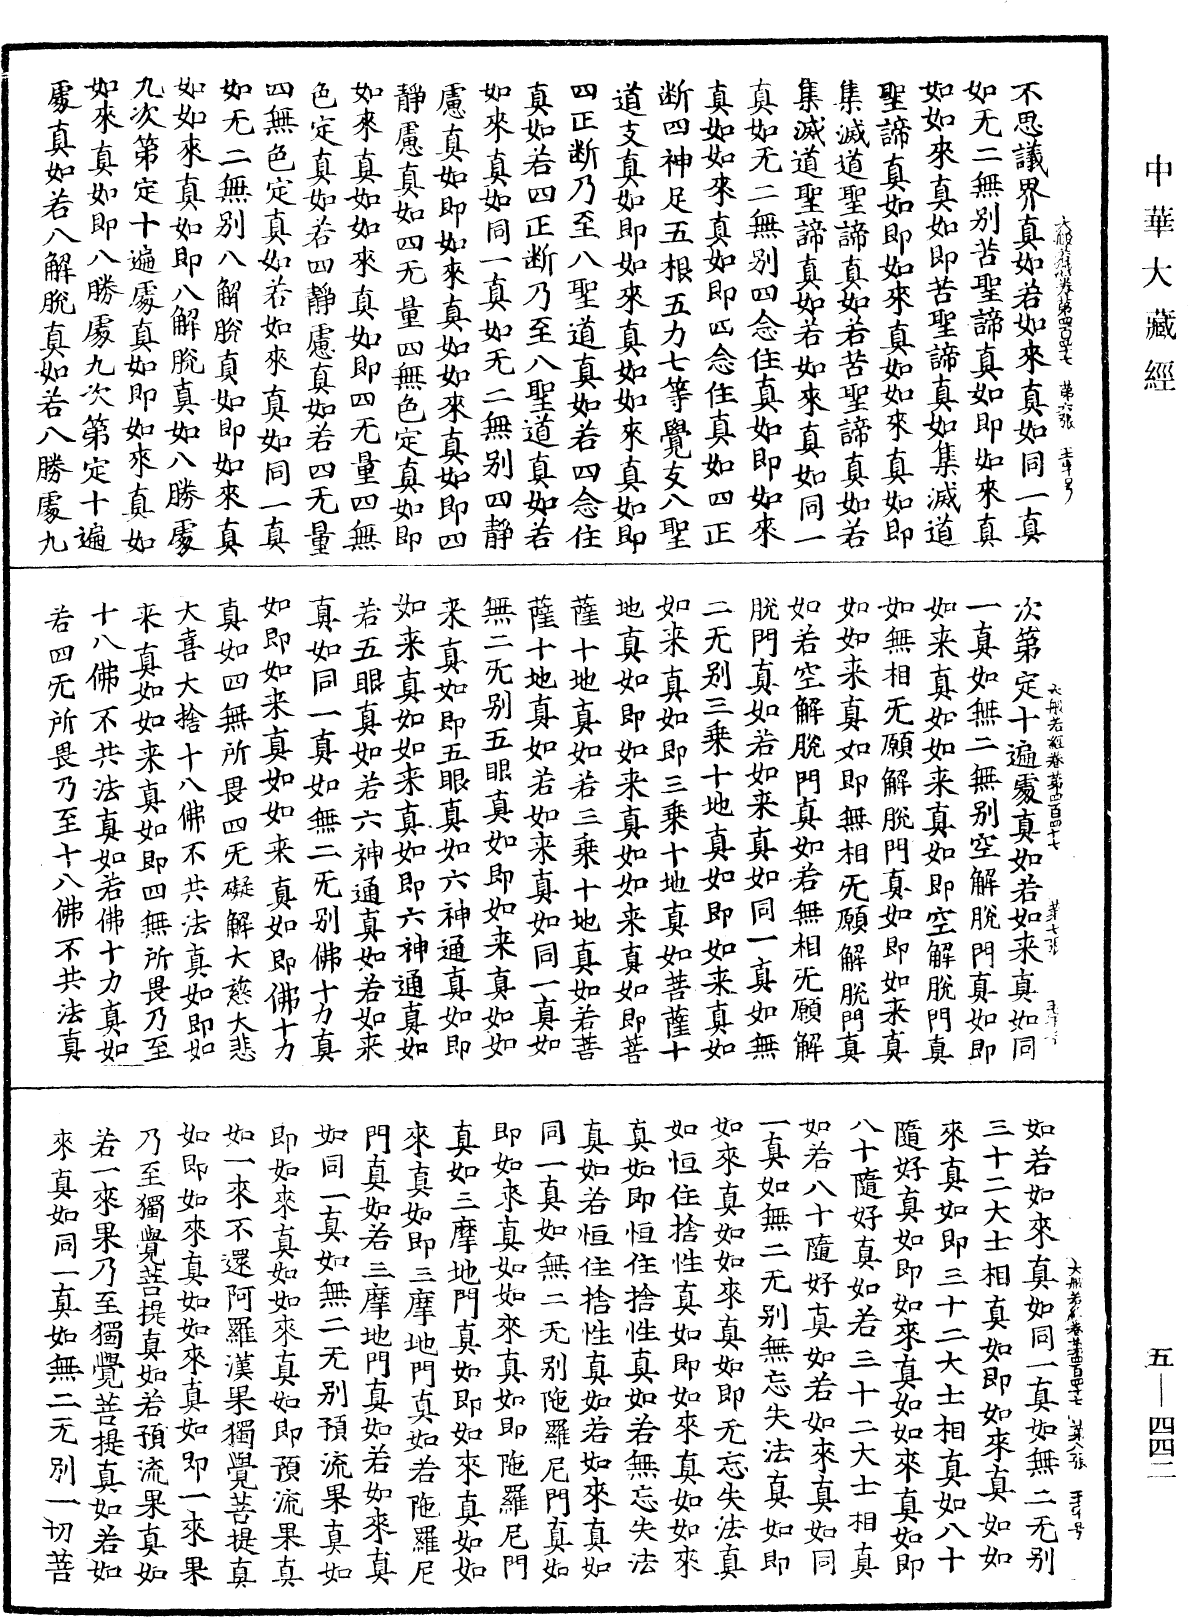 中華大藏經
不思議界真如若如來真如同一真
如无二無别苦聖諦真如即如來真
如如來真如即苦聖諦真如集滅道
聖諦真如即如來真如如來真如即
集滅道聖諦真如若苦聖諦真如若
集滅道聖諦真如若如來真如同一
真如无二無别四念住真如即如來
真如如來真如即四念住真如四正
断四神足五根五力七等覺支八聖
道支真如即如來真如如來真如即
四正断乃至八聖道真如若四念住
真如若四正断乃至八聖道真如若
如來真如同一真如无二無别四静
慮真如即如來真如如來真如即四
静慮真如四无量四無色定真如即
如來真如如來真如即四无量四無
色定真如若四静慮真如若四无量
四無色定真如若如來真如同一真
如无二無别八解脫真如即如來真
如如來真如即八解脫真如八勝處
九次第定十遍處真如即如來真如
如來真如即八勝處九次第定十遍
處真如若八解脫真如若八勝處九
大般若經卷第四百四十七 第七張
次第定十遍處真如若如来真如同
一真如無二無别空解脫門真如即
如来真如如来真如即空解脫門真
如無相无願解脫門真如即如来真
如如来真如即無相无願解脫門真
如若空解脫門真如若無相无願解
脫門真如若如来真如同一真如無
二无别三乘十地真如即如来真如
如来真如即三乘十地真如菩薩十
地真如即如来真如如来真如即菩
薩十地真如若三乘十地真如若菩
薩十地真如若如来真如同一真如
無二无别五眼真如即如来真如如
来真如即五眼真如六神通真如即
如来真如如来真如即六神通真如
若五眼真如若六神通真如若如来
真如同一真如無二无别佛十力真
如即如来真如如来真如即佛十力
真如四無所畏四无礙解大慈大悲
大喜大捨十八佛不共法真如即如
来真如如来真如即四無所畏乃至
十八佛不共法真如若佛十力真如
若四无所畏乃至十八佛不共法真
如若如來真如同一真如無二无别
三十二大士相真如即如來真如如
來真如即三十二大士相真如八十
隨好真如即如來真如如來真如即
八十隨好真如若三十二大士相真
如若八十隨好真如若如來真如同
一真如無二无别無忘失法真如即
如來真如如來真如即无忘失法真
如恒住捨性真如即如來真如如來
真如即恒住捨性真如若無忘失法
真如若恒住捨性真如若如來真如
同一真如無二无别陁羅尼門真如
即如來真如如來真如即陁羅尼門
真如三摩地門真如即如來真如如
來真如即三摩地門真如若陁羅尼
門真如若三摩地門真如若如來真
如同一真如無二无别預流果真如
即如來真如如來真如即預流果真
如一來不還阿羅漢果獨覺菩提真
如即如來真如如來真如即一來果
乃至獨覺菩提真如若預流果真如
若一來果乃至獨覺菩提真如若如
來真如同一真如無二无别一切菩
五—四四二